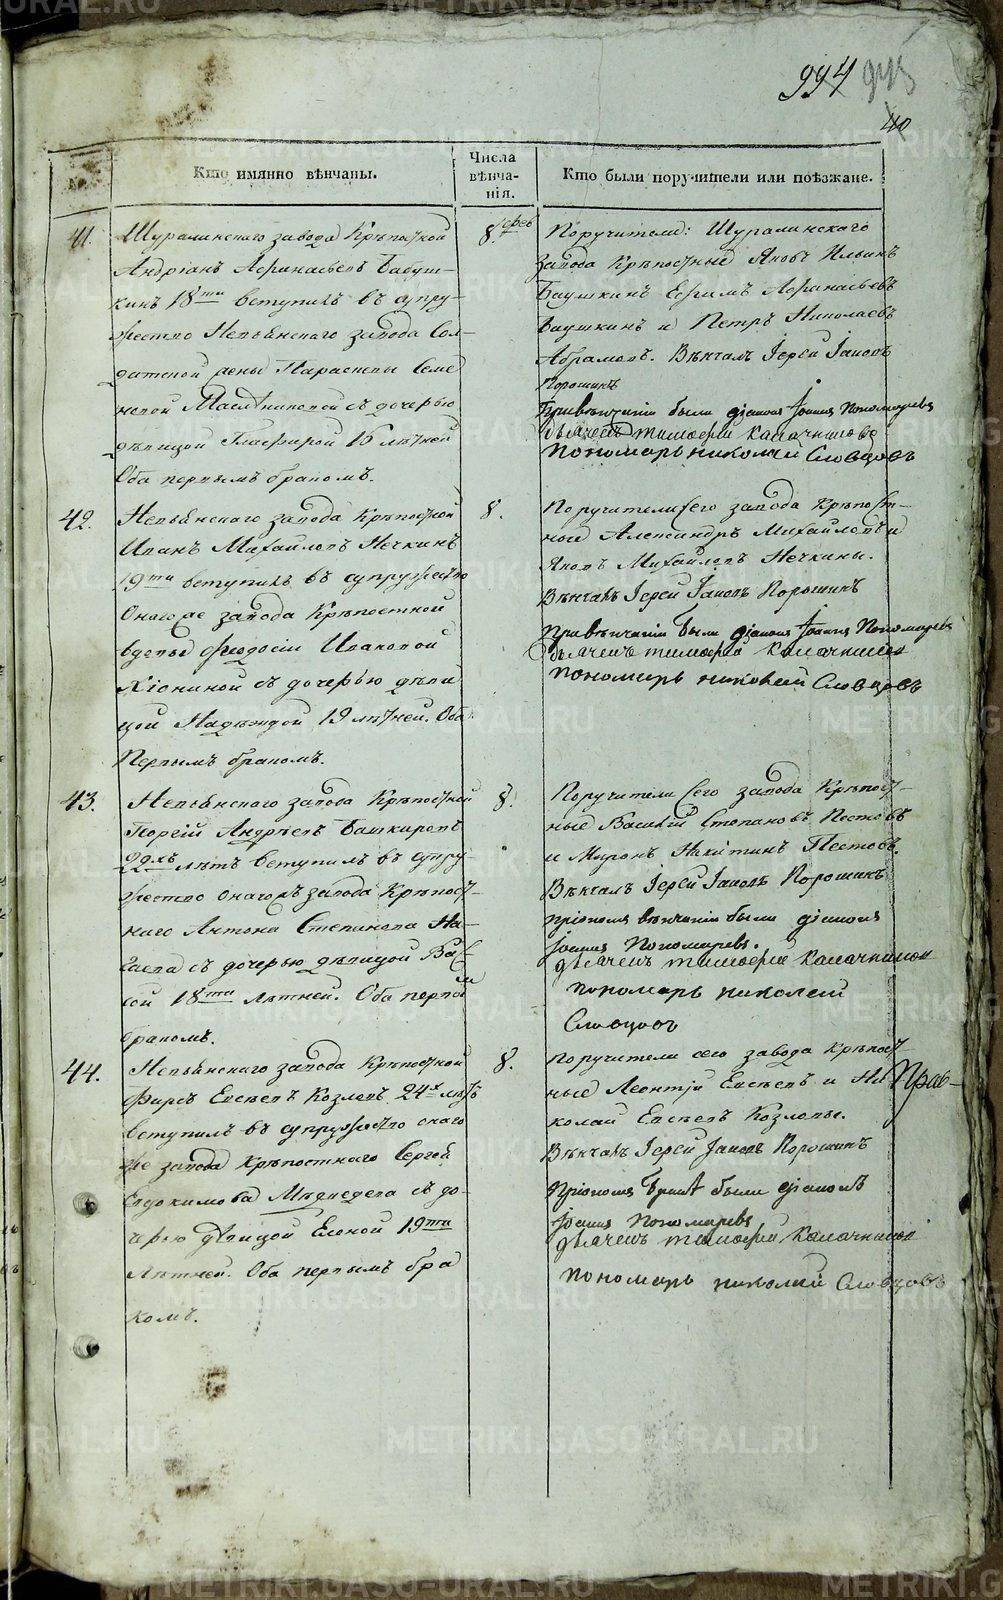 994
40
№
Кто имянно вѣнчаны.
Числа вѣнчанія.
Кто были поручители или поѣзжане.
41.
Шуралинскаго завода Крѣпостной
Андріанъ Афанасьевъ Бабуш-
кинъ 18ти вступилъ въ супру-
жество Невьянскаго завода Сол-
датской жены Парасковьи Семе
новой Масленниковой съ дочерью
дѣвицой Глафирой 16 лѣтней
Оба первымъ бракомъ.
8. фев
Поручители: Шуралинскаго
завода Крѣпостные Яковъ Ильинъ
Баушкинъ Ефимъ Афанасьевъ
Баушкинъ и Петръ Николаевъ
Абрамовъ. Вѣнчалъ Іерей Іаковъ
Порошинъ
При вѣнчаніи были діаконъ Іоаннъ Пономаревъ
дьячекъ тимофей калачниковъ
пономарь николай Словцовъ
42.
Невьянскаго завода Крѣпостной
Иванъ Михайловъ Нечкинъ
19ти вступилъ въ супружество
Онаго же завода Крѣпостной
вдовы Феодосіи Ивановой
Хіониной съ дочерью дѣви
цой Надеждой 19 лѣтней. Оба
Первымъ бракомъ.
8.
Поручители сего завода Крѣпост-
ные Александръ Михайловъ и
Яковъ Михайловъ Нечкины.
Вѣнчалъ Іерей Іаковъ Порошинъ
При вѣнчаніи были діаконъ Іоаннъ Пономаревъ
дьячекъ тимофей калачниковъ
пономарь николай Словцовъ
43.
Невьянскаго завода Крѣпостной
Георгій Андрѣевъ Башкировъ
22хъ лѣтъ вступилъ въ супру-
жество онагожъ завода Крѣпост-
наго Антона Степанова
съ дочерью дѣвицой Вас
сой 18ти лѣтней. Оба первымъ
бракомъ.
8.
Поручители сего завода Крѣпост-
ные Василій Степановъ Пестовъ
и Миронъ Никитинъ Пестовъ.
Вѣнчалъ Іерей Іаковъ Порошинъ
при ономъ вѣнчаніи были діаконъ
Іоаннъ Пономаревъ.
дьячекъ тимофей калачниковъ
пономарь николай
Словцовъ
44.
Невьянскаго завода Крѣпостной
Фирсъ Евсѣевъ Козловъ 24х лѣтъ
вступилъ въ супружество онаго
же завода Крѣпостнаго Сергѣй
Евдокимова Медведева съ до-
черью дѣвицой Еленой 19ти
лѣтней. Оба первымъ бра
комъ.
8.
поручители сего завода Крѣпост-
ные Леонтій Евсѣевъ и Ни
колай Евсѣевъ Козловы.
Вѣнчалъ Іерей Іаковъ Порошинъ
При ономъ бракѣ были діаконъ
Іоаннъ Пономаревъ
дьячекъ тимофей калачниковъ
пономарь николай Словцовъ
Прав-
METRIKI.GASO-URAL.RU